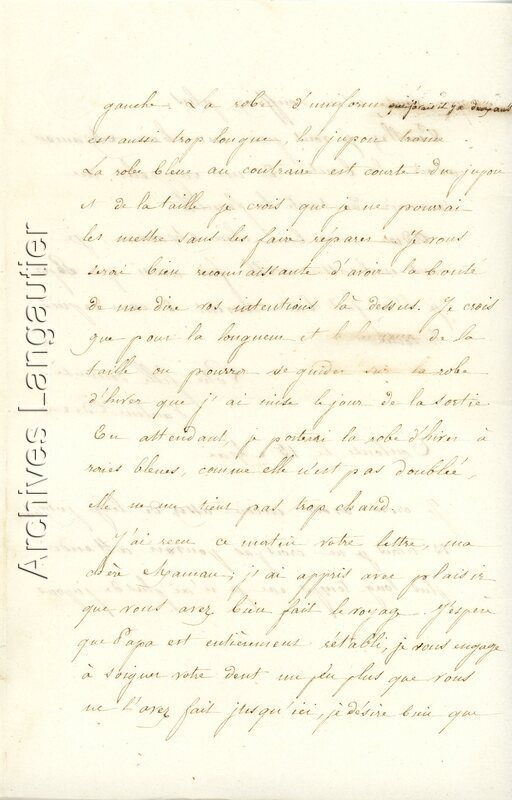 gauche. La robe d'uniforme que j'avais il y a deux ans
est aussi trop longue, le jupon traine.
La robe bleue au contraire est courte du jupon
et de la taille je crois que je ne pourrai
les mettre sans les faire réparer. Je vous
serai bien reconnaissante d'avoir la bonté
de me dire vos intentions là dessus. Je crois
que pour la longueur et la largeur de la
taille on pourra se guider sur la robe
d'hiver que j'ai mise le jour de la sortie
En attendant je porterai la robe d'hiver à
raies bleues, comme elle n'est pas doublée,
elle ne me tient pas trop chaud.
J'ai reçu ce matin votre lettre, ma
chère Maman, j'ai appris avec plaisir
que vous avez bien fait le voyage. J'espère
que Papa est entièrement rétabli, je vous engage
à soigner votre dent un peu plus que vous
ne l'avez fait jusqu'ici, je désire bien que
Archives Langautier